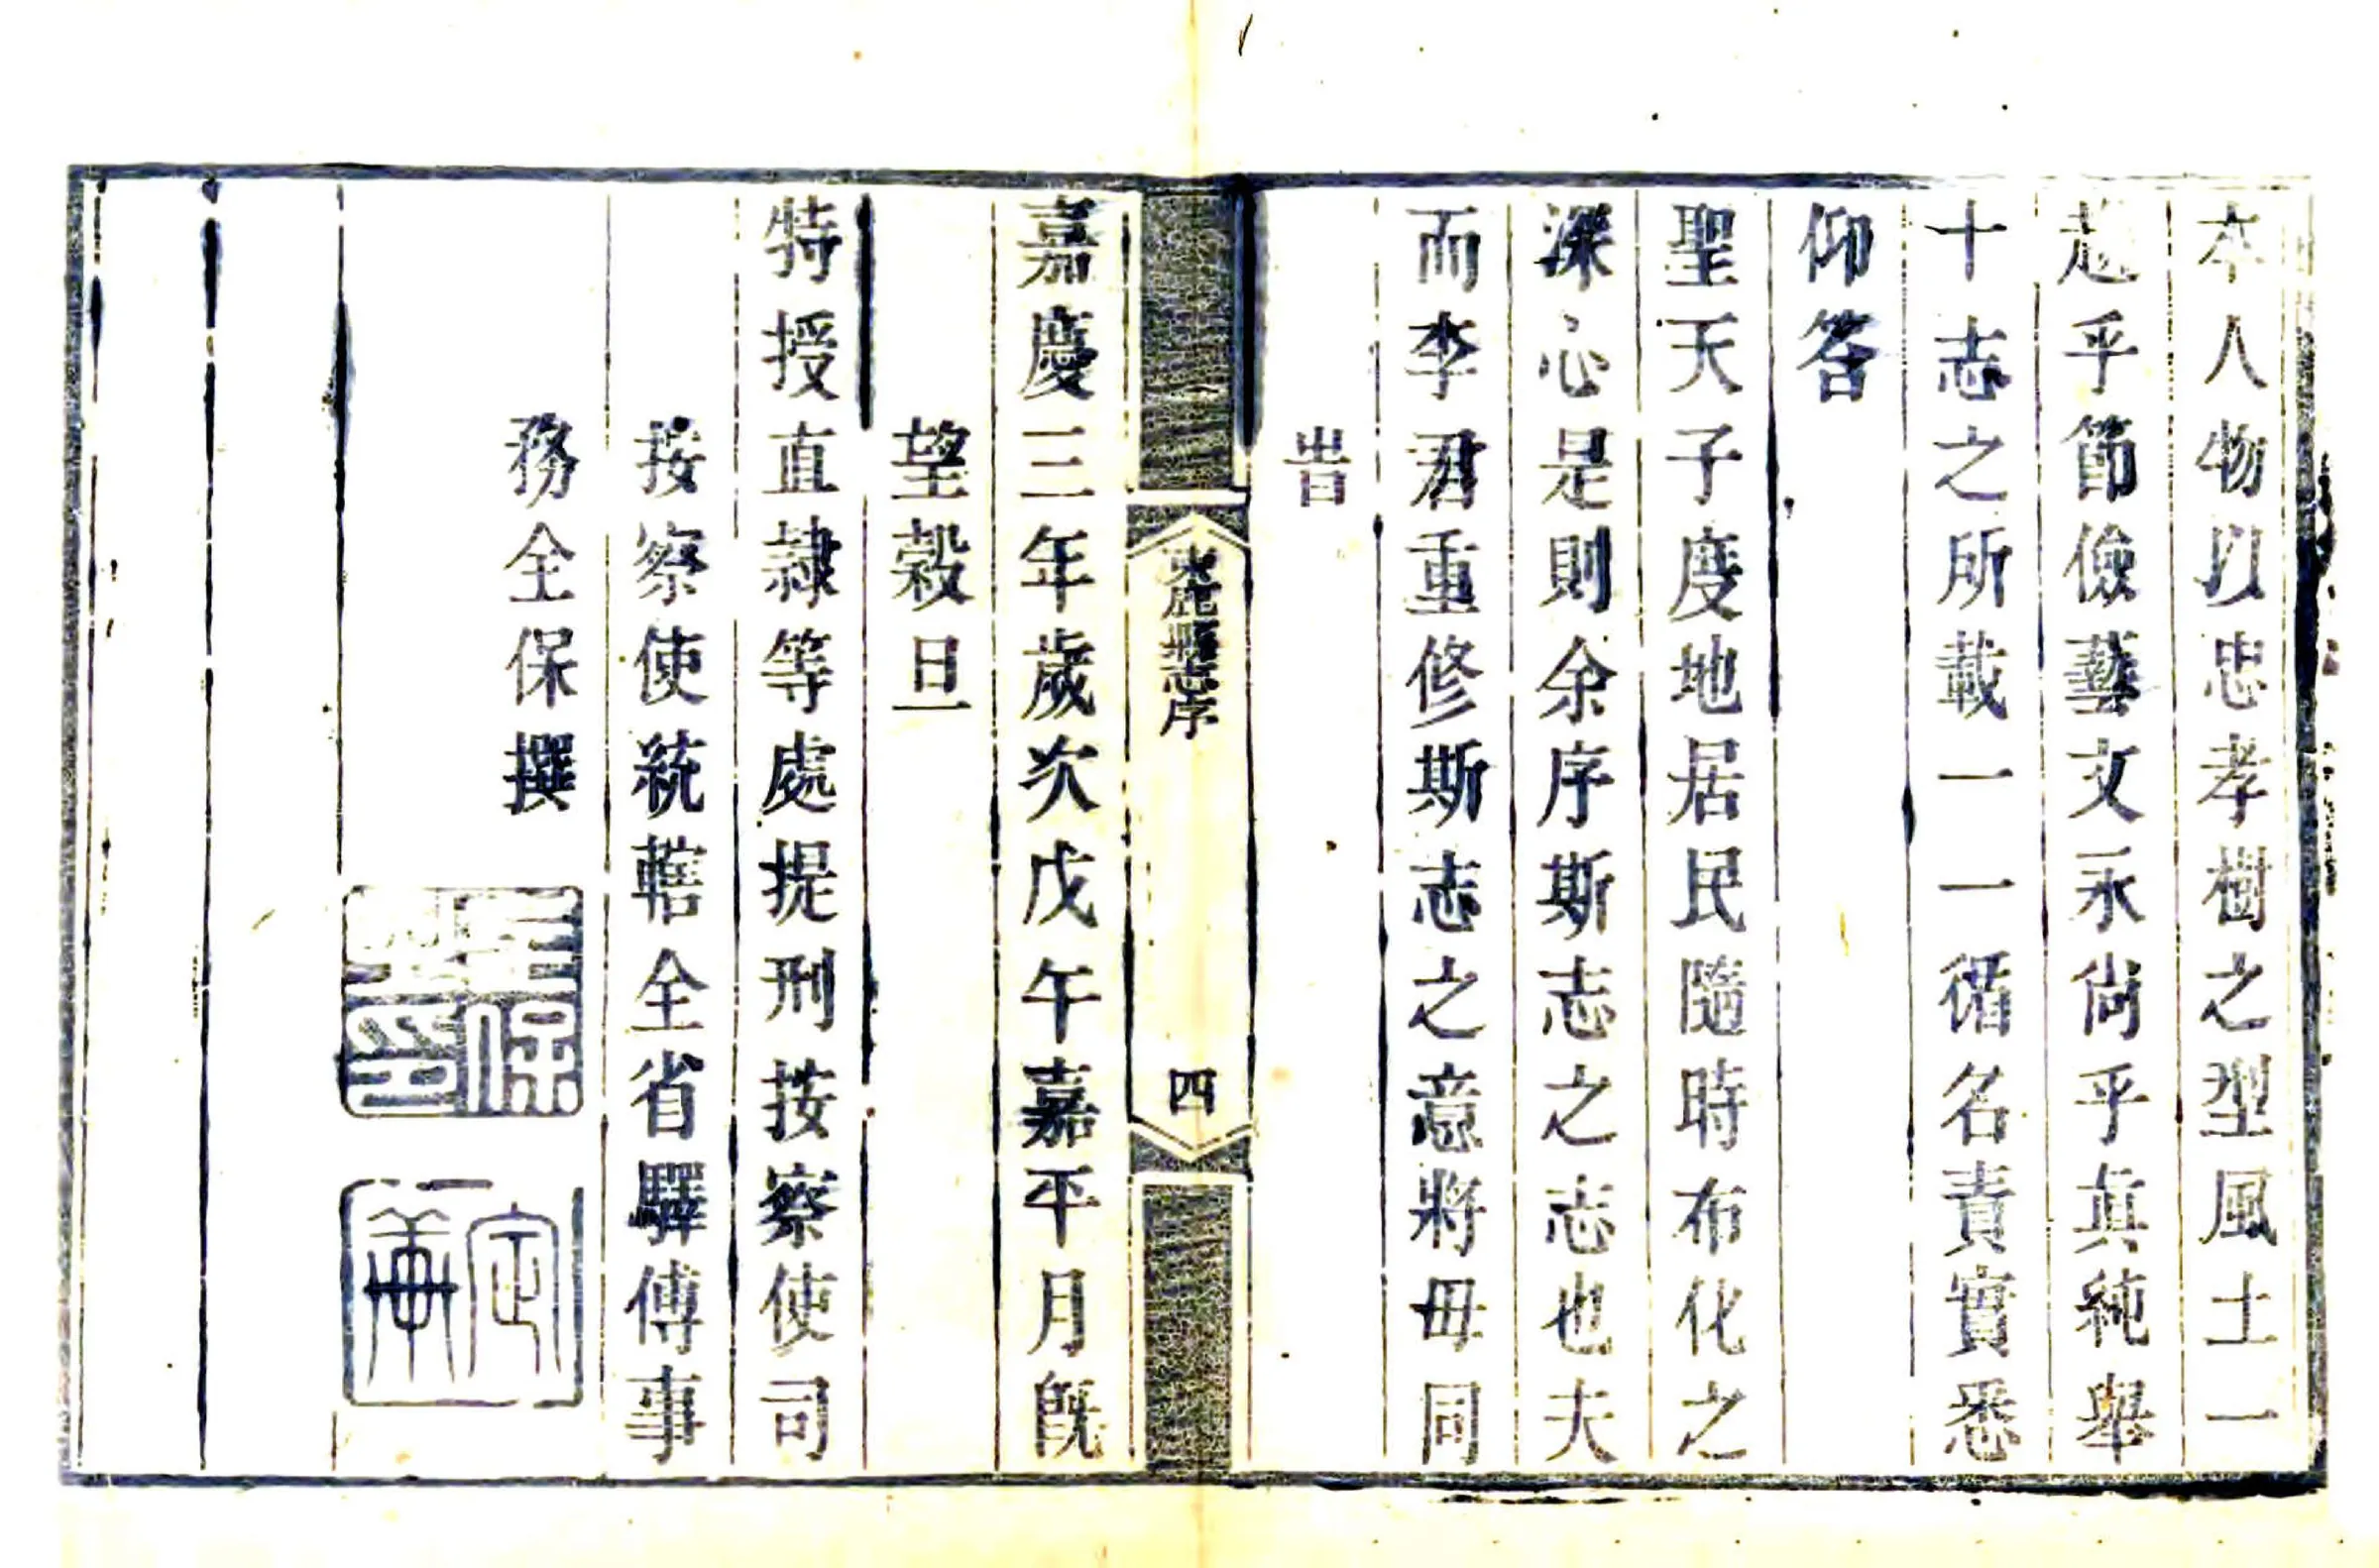 本人物以忠孝樹之型風土一
趨乎節儉藝文永尚乎真純舉
十志之所載一一循名責實悉
仰答
聖天子度地居民隨時布化之
深心是則余序斯志之志也夫
而李君重修斯志之意將毋同
旹
束鹿縣志序
四
嘉慶三年歲次戊午嘉平月旣
望穀旦
特授直隷等處提刑按察使司
按察使統轄全省驛傳事
務全保撰
全保之印